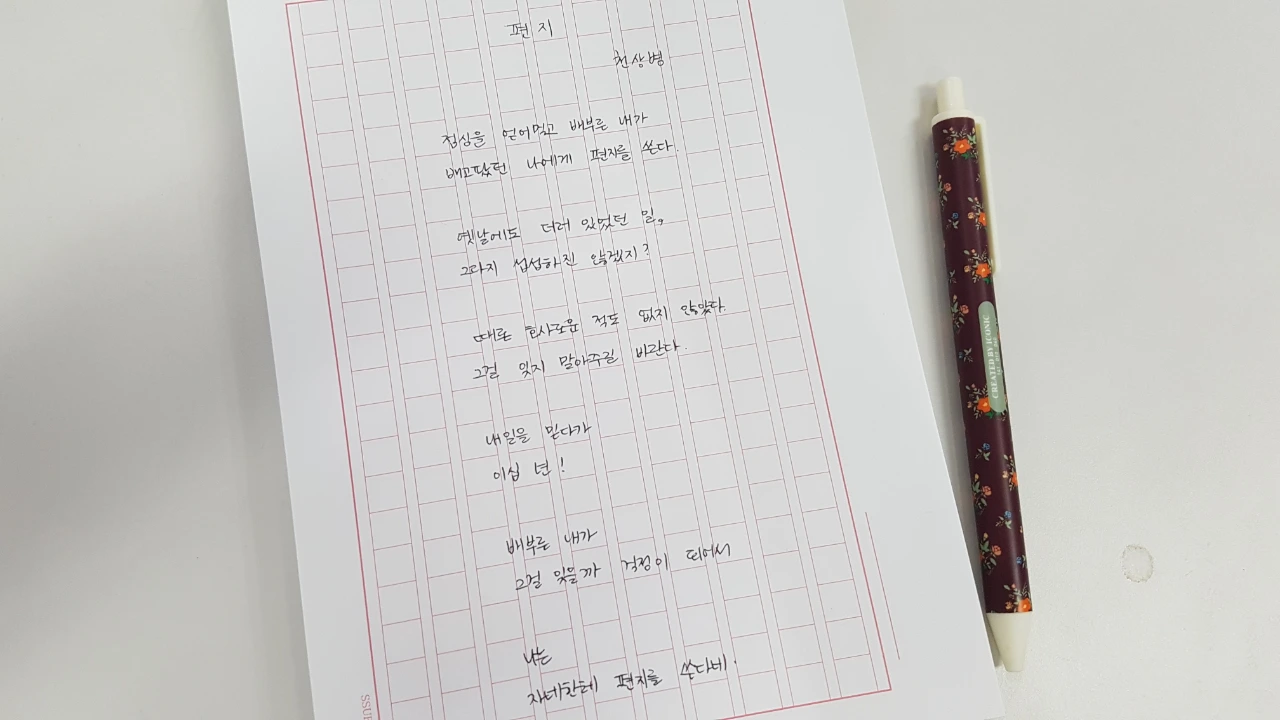 편지
천상병
점심을 얻어먹고 배부른 내가
배고팠던 나에게 편지를 쓴다.
옛날에도 더러 있었던 일,
그다지 섭섭하진 않겠지?
때론 호사로운 적도 없지 않았다.
그걸 잊지 말아주길 바란다.
내일을 믿다가
이십 년!
배부른 내가
그걸 잊을까 걱정이 되어서
나는
자네한테 편지를 쓴다네.
CREATED BY ICONIC